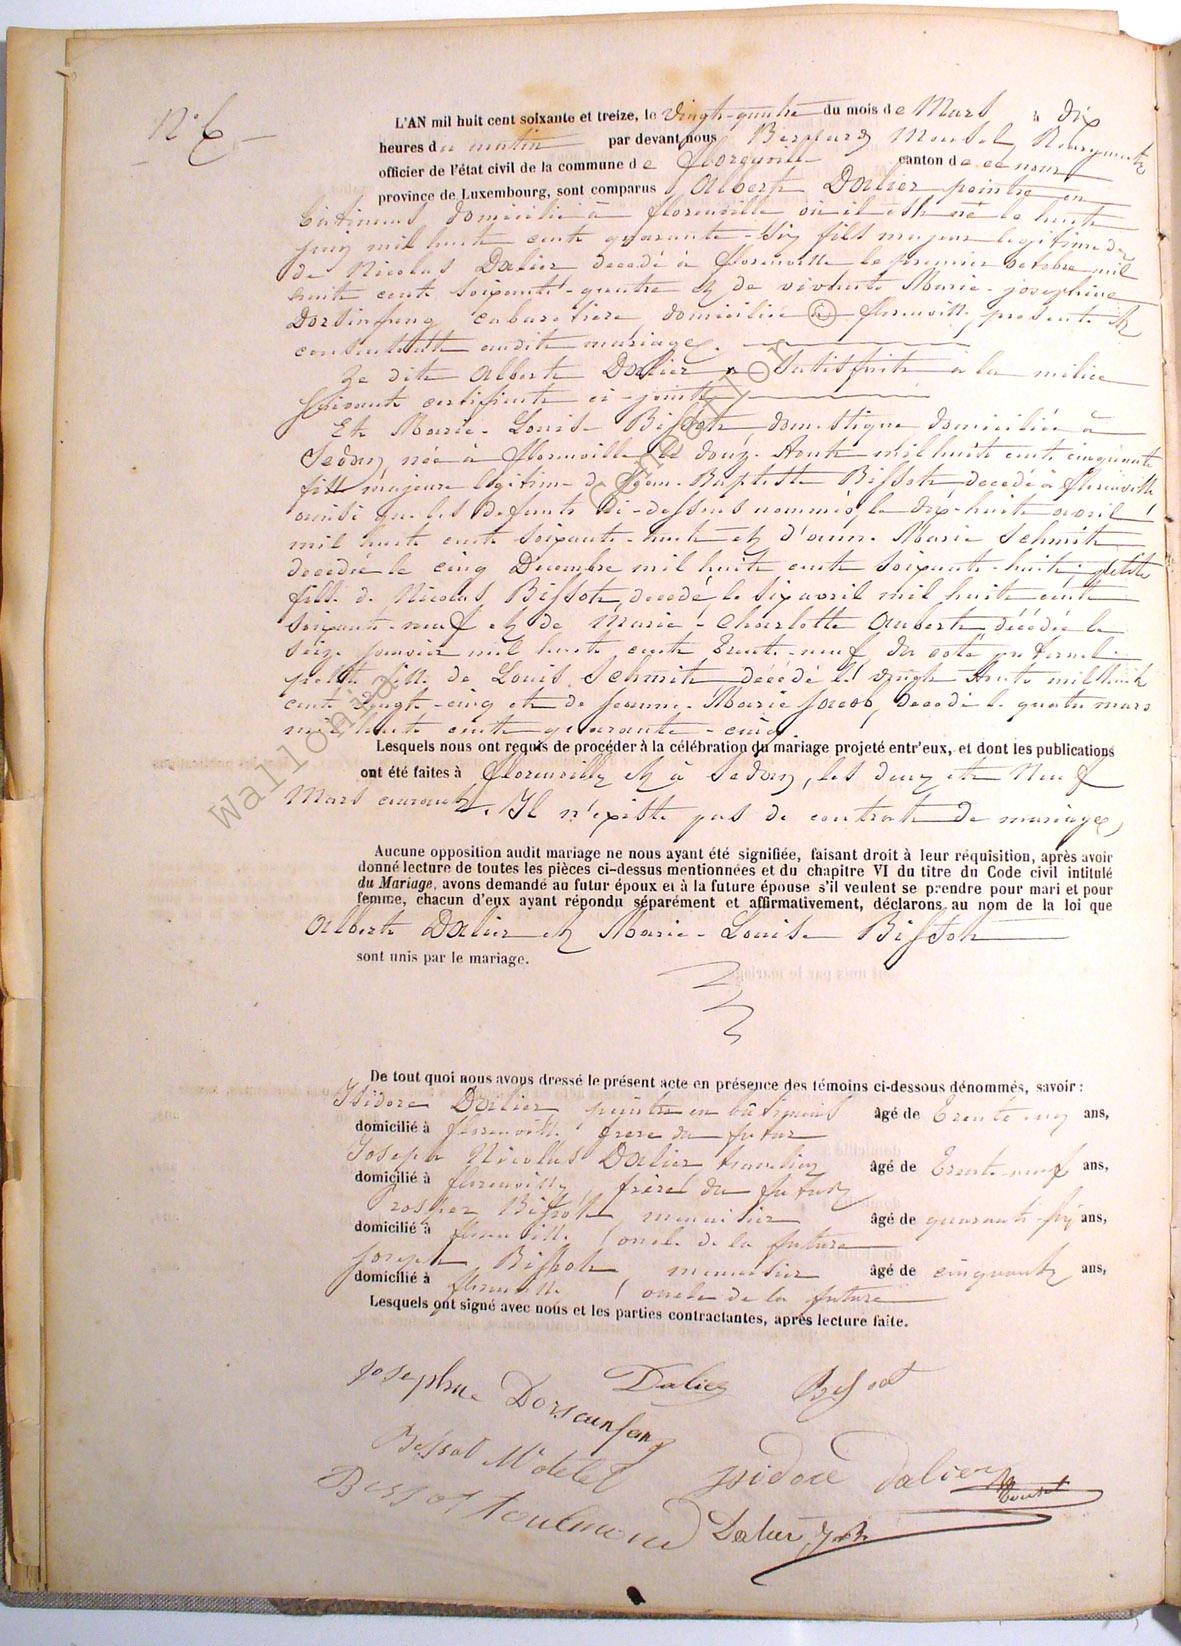 N° 6
L'AN mil huit cent soixante et treize, le vingt-quatre du mois de Mars à dix
heures du matin par devant nous Bernard Mousel Bourgmestre
officier de l'état civil de la commune de florenville canton de ce nom
province de Luxembourg, sont comparus Albert Dalier peintre en
batiment domicilié à florenville où il est né le huit
juin mil huit cent quarante-six fils majeur légitime de
de Nicolas Dalier decedé à florenville le premier octobre mil
huit cent soixante-quatre et de vivante Marie-josephine
cabaretière domiciliée à florenville, présente et
consentante audit mariage.
Le dit Albert Dalier a satisfait à la milice
suivant certificat ci-joint
Et Marie-Louise Bissot domestique domiciliée à
Sedan, née à florenville le douze Aout mil huit cent cinquante
fille majeure légitime de Jean-Baptiste Bissot decedé à florenville
ainsi que les defunts ci-dessous nommés, le dix-huit avril
mil huit cent soixante-huit et d'anne Marie Schmit
decedée le cinq Decembre mil huit cent soixante-huit petite
fille de Nicolas Bissot, decedé le six avril mil huit cent
soixante-neuf et de Marie-Charlotte Aubert, décédée le
seize janvier mil huit cent trente-neuf du coté paternel
petite fille de Louis Schmit décédé le vingt Aout mil huit
cent vingt-cinq et de Jeanne-Marie Jacob, decedé le quatre mars
mil huit cent quarante-cinq.
Lesquels nous ont requis de procéder à la célébration du mariage projeté entr'eux, et dont les publications
ont été faites à florenville et à Sedan, les deux et Neuf
Mars courant. Il n'existe pas de contrat de mariage,
Aucune opposition audit mariage ne nous ayant été signifiée, faisant droit à leur réquisition, après avoir
donné lecture de toutes les pièces ci-dessus mentionnées et du chapitre VI du titre du Code civil intitulé
du Mariage, avons demandé au futur époux et à la future épouse s'il veulent se prendre pour mari et pour
femme, chacun d'eux ayant répondu séparément et affirmativement, déclarons au nom de la loi que
Albert Dalier et Marie-Louise Bissot
sont unis par le mariage.
De tout quoi nous avons dressé le présent acte en présence des témoins ci-dessous dénommés, savoir :
Isidore Dalier peintre en bâtiment âgé de trente cinq ans,
domicilié à florenville frère du futur
Joseph Nicolas Dalier âgé de trente-neuf ans,
domicilié à florenville frère du futur
Prosper Bissot menuisier âgé de quarante-six ans,
domicilié à florenville oncle de la future
Joseph Bissot menuisier âgé de cinquante ans,
domicilié à florenville oncle de la future
Lesquels ont signé avec nous et les parties contractantes, après lecture faite.
Josephine Dorsainfang Dalier Bissot
Bissot Motelet Isidore Dalier Mousel
Bissot Toulmond Dalier
Wallonia © Conseillor